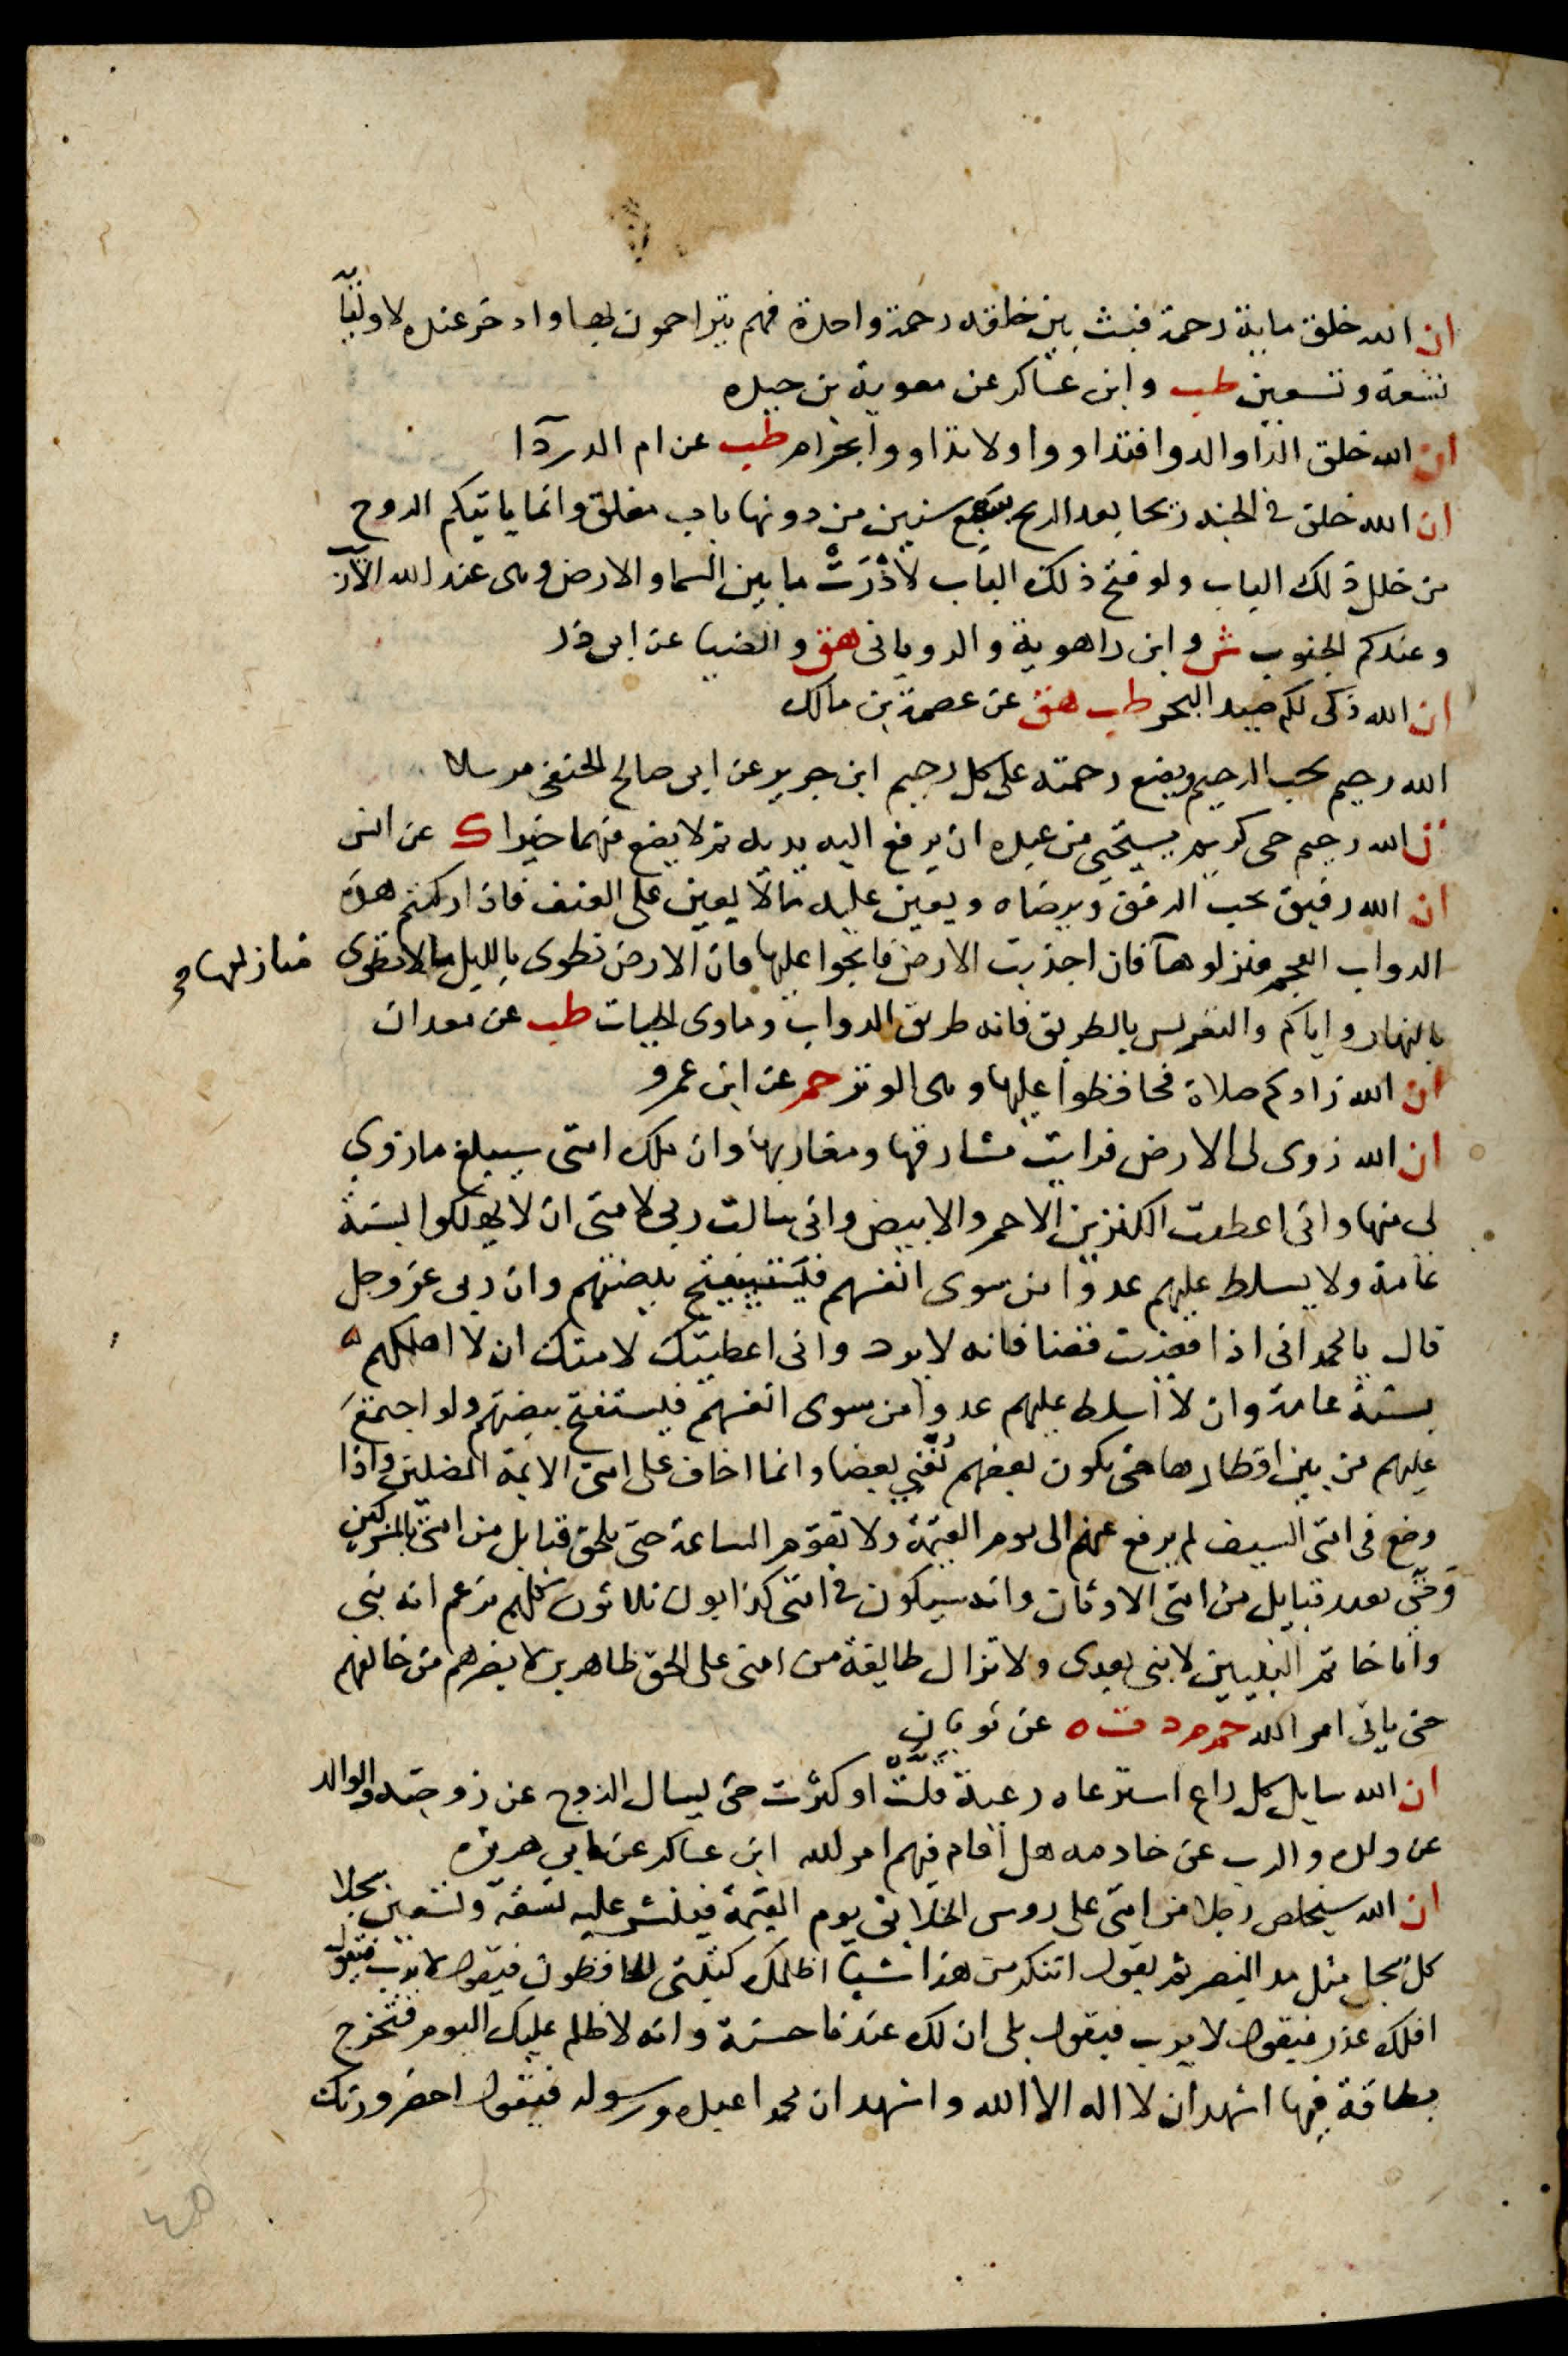 ان الله خلق ماية رحمة فبث بين خلقه رحمة واحدة فهم يتراحمون بها وادخر عنده لاوليايه
تسعة وتسعين طب وابن عساكر عن معوية بن حيده
ان الله خلق الدا والدوا فتداووا ولا تداووا بحرام طب عن ام الدردآ
ان الله خلق في الجنه ريحا بعد الريح بسبع سنين من دونها باب مغلق وانما ياتيكم الروح
من خلل ذلك الباب ولو فتح ذلك الباب لاذرت ما بين السما والارض وهى عند الله الازب
وعندكم الجنوب ش وابن راهوية والرويانى هق والضيا عن ابى ذر
ان الله ذكى لكم صيد البحر طب هق عن عصمة بن مالك
الله رحيم يحب الرحيم ويضع رحمته على كل رحيم ابن جرير عن ابى صالح الحنفى مرسلا
ان الله رحيم حى كريم يستحيى من عبده ان يرفع اليه يديه ثم لا يضع فيهما خيرا ك عن انس
ان الله رفيق يحب الرفق ويرضاه ويعين عليه مالا يعين على العنف فاذا ركبتم هذه
الدواب العجم فنزلوها فان اجدبت الارض فانجوا عليها فان الارض تطوى بالليل مالا تطوى
منازلها
بالنهار واياكم والتعريس بالطريق فانه طريق الدواب وماوى الحيات طب عن معدان
ان الله زادكم صلاة فحافظوا عليها وهى الوتر حم عن ابن عمرو
ان الله زوى لى الارض فرايت مشارقها ومغاربها وان ملك امتى سيبلغ ما زوي
لى منها وانى اعطيت الكنزين الاحمر والابيض وانى سالت ربى لامتى ان لا يهلكوا بسنة
عامة ولا يسلط عليهم عدوا من سوى انفسهم فيستبيح بيضتهم وان ربى عز وجل
قال يا محمد انى اذا قضيت قضا فانه لا يرد وانى اعطيتك لامتك ان لا اهلكهم
بسنة عامة وان لا اسلط عليهم عدوا من سوى انفسهم فيستفتح بيضتهم ولو اجتمع
عليهم من بين اقطارها حتى يكون بعضهم يفني بعضا وانما اخاف على امتى الايمة المضلين واذا
وضع فى امتى السيف لم يرفع عنهم الى يوم القيمة ولا تقوم الساعة حتى يلحق قبايل من امتى بالمشركين
وحتى تعبد قبايل من امتى الاوثان وانه سيكون فى امتى كذابون ثلاثون كلهم يزعم انه نبى
وانا خاتم النبيين لا نبى بعدى ولا تزال طايفة من امتى على الحق ظاهرين لا يضرهم من خالفهم
حتى ياتى امر الله حم م د ت ه عن ثوبان
ان الله سايل كل راع استرعاه رعية قلت او كثرت حتى يسال الزوج عن زوجته والوالد
عن ولده والرب عن خادمه هل اقام فيهم امر الله ابن عساكر عن ابي هريره
ان الله سيخلص رجلا من امتى على روس الخلايق يوم القيمة فينشر عليه تسعة وتسعين سجلا
كل سجل مثل مد البصر ثم يقول اتنكر من هذا شيا اظلمك كتبتى الحافظون فيقول لا يرب فيقول
افلك عذر فيقول لا يرب فيقول بلى ان لك عندنا حسنة وانه لا ظلم عليك اليوم فتخرج
بطاقة فيها اشهد ان لا اله الا الله واشهد ان محمدا عبده ورسوله فيقول احضر وزنك